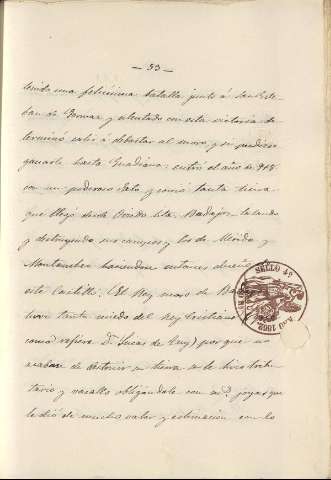 — 53 —
tenido una felicisima batalla junto á San Este-
ban de Gormaz y alentado con esta victoria de-
terminó salir á debastar al moro y su poderio
ganarle hasta Guadiana: entró el año de 918
con un poderoso y corrió tanta tierra
que llegó desde Oviedo hta. Badajoz talando
y destruyendo sus campos y los de Mérida y
Montanchez haciendose entonces dueño de
este Castillo. (El Rey moro de Ba
hovo tanto miedo del Rey Cristiano
como refiere D. Lucas de Tuy) por que no
acabase de destruir su tierra se le hizo tribu-
tario y vasallo obligándole con md. joyas que
le dió de mucho valor y estimacion con lo
SELLO 4º
AÑO 1662